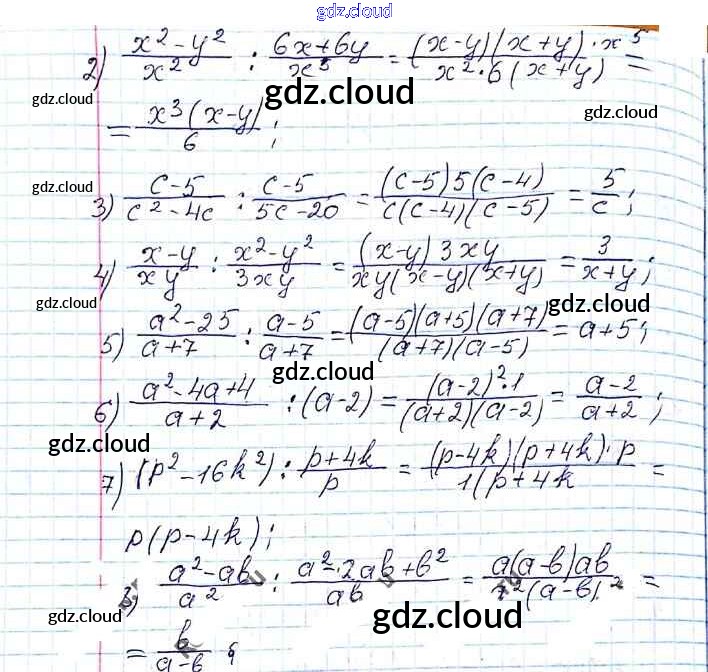 gdz.cloud
gdz.cloud
2) (x² - y²)/x² : (6x + 6y)/x⁵ = ((x - y)(x + y) · x⁵)/(x² · 6(x + y)) =
gdz.cloud gdz.cloud
= x³(x - y)/6 ;
gdz.cloud
gdz.cloud
3) (c - 5)/(c² - 4c) : (c - 5)/(5c - 20) = ((c - 5)5(c - 4))/(c(c - 4)(c - 5)) = 5/c ;
4) (x - y)/(xy) : (x² - y²)/(3xy) = ((x - y)3xy)/(xy(x - y)(x + y)) = 3/(x + y) ;
gdz.cloud gdz.cloud
5) (a² - 25)/(a + 7) : (a - 5)/(a + 7) = ((a - 5)(a + 5)(a + 7))/((a + 7)(a - 5)) = a + 5 ;
gdz.cloud
6) (a² - 4a + 4)/(a + 2) : (a - 2) = ((a - 2)² · 1)/((a + 2)(a - 2)) = (a - 2)/(a + 2) ;
gdz.cloud
7) (p² - 16k²) : (p + 4k)/p = ((p - 4k)(p + 4k) · p)/(1(p + 4k) =
p(p - 4k) ;
8) (a² - ab)/a² : (a² - 2ab + b²)/(ab) = (a(a - b)ab)/(a²(a - b)²) =
gdz.cloud gdz.cloud
= b/(a - b) ;
gdz.cloud